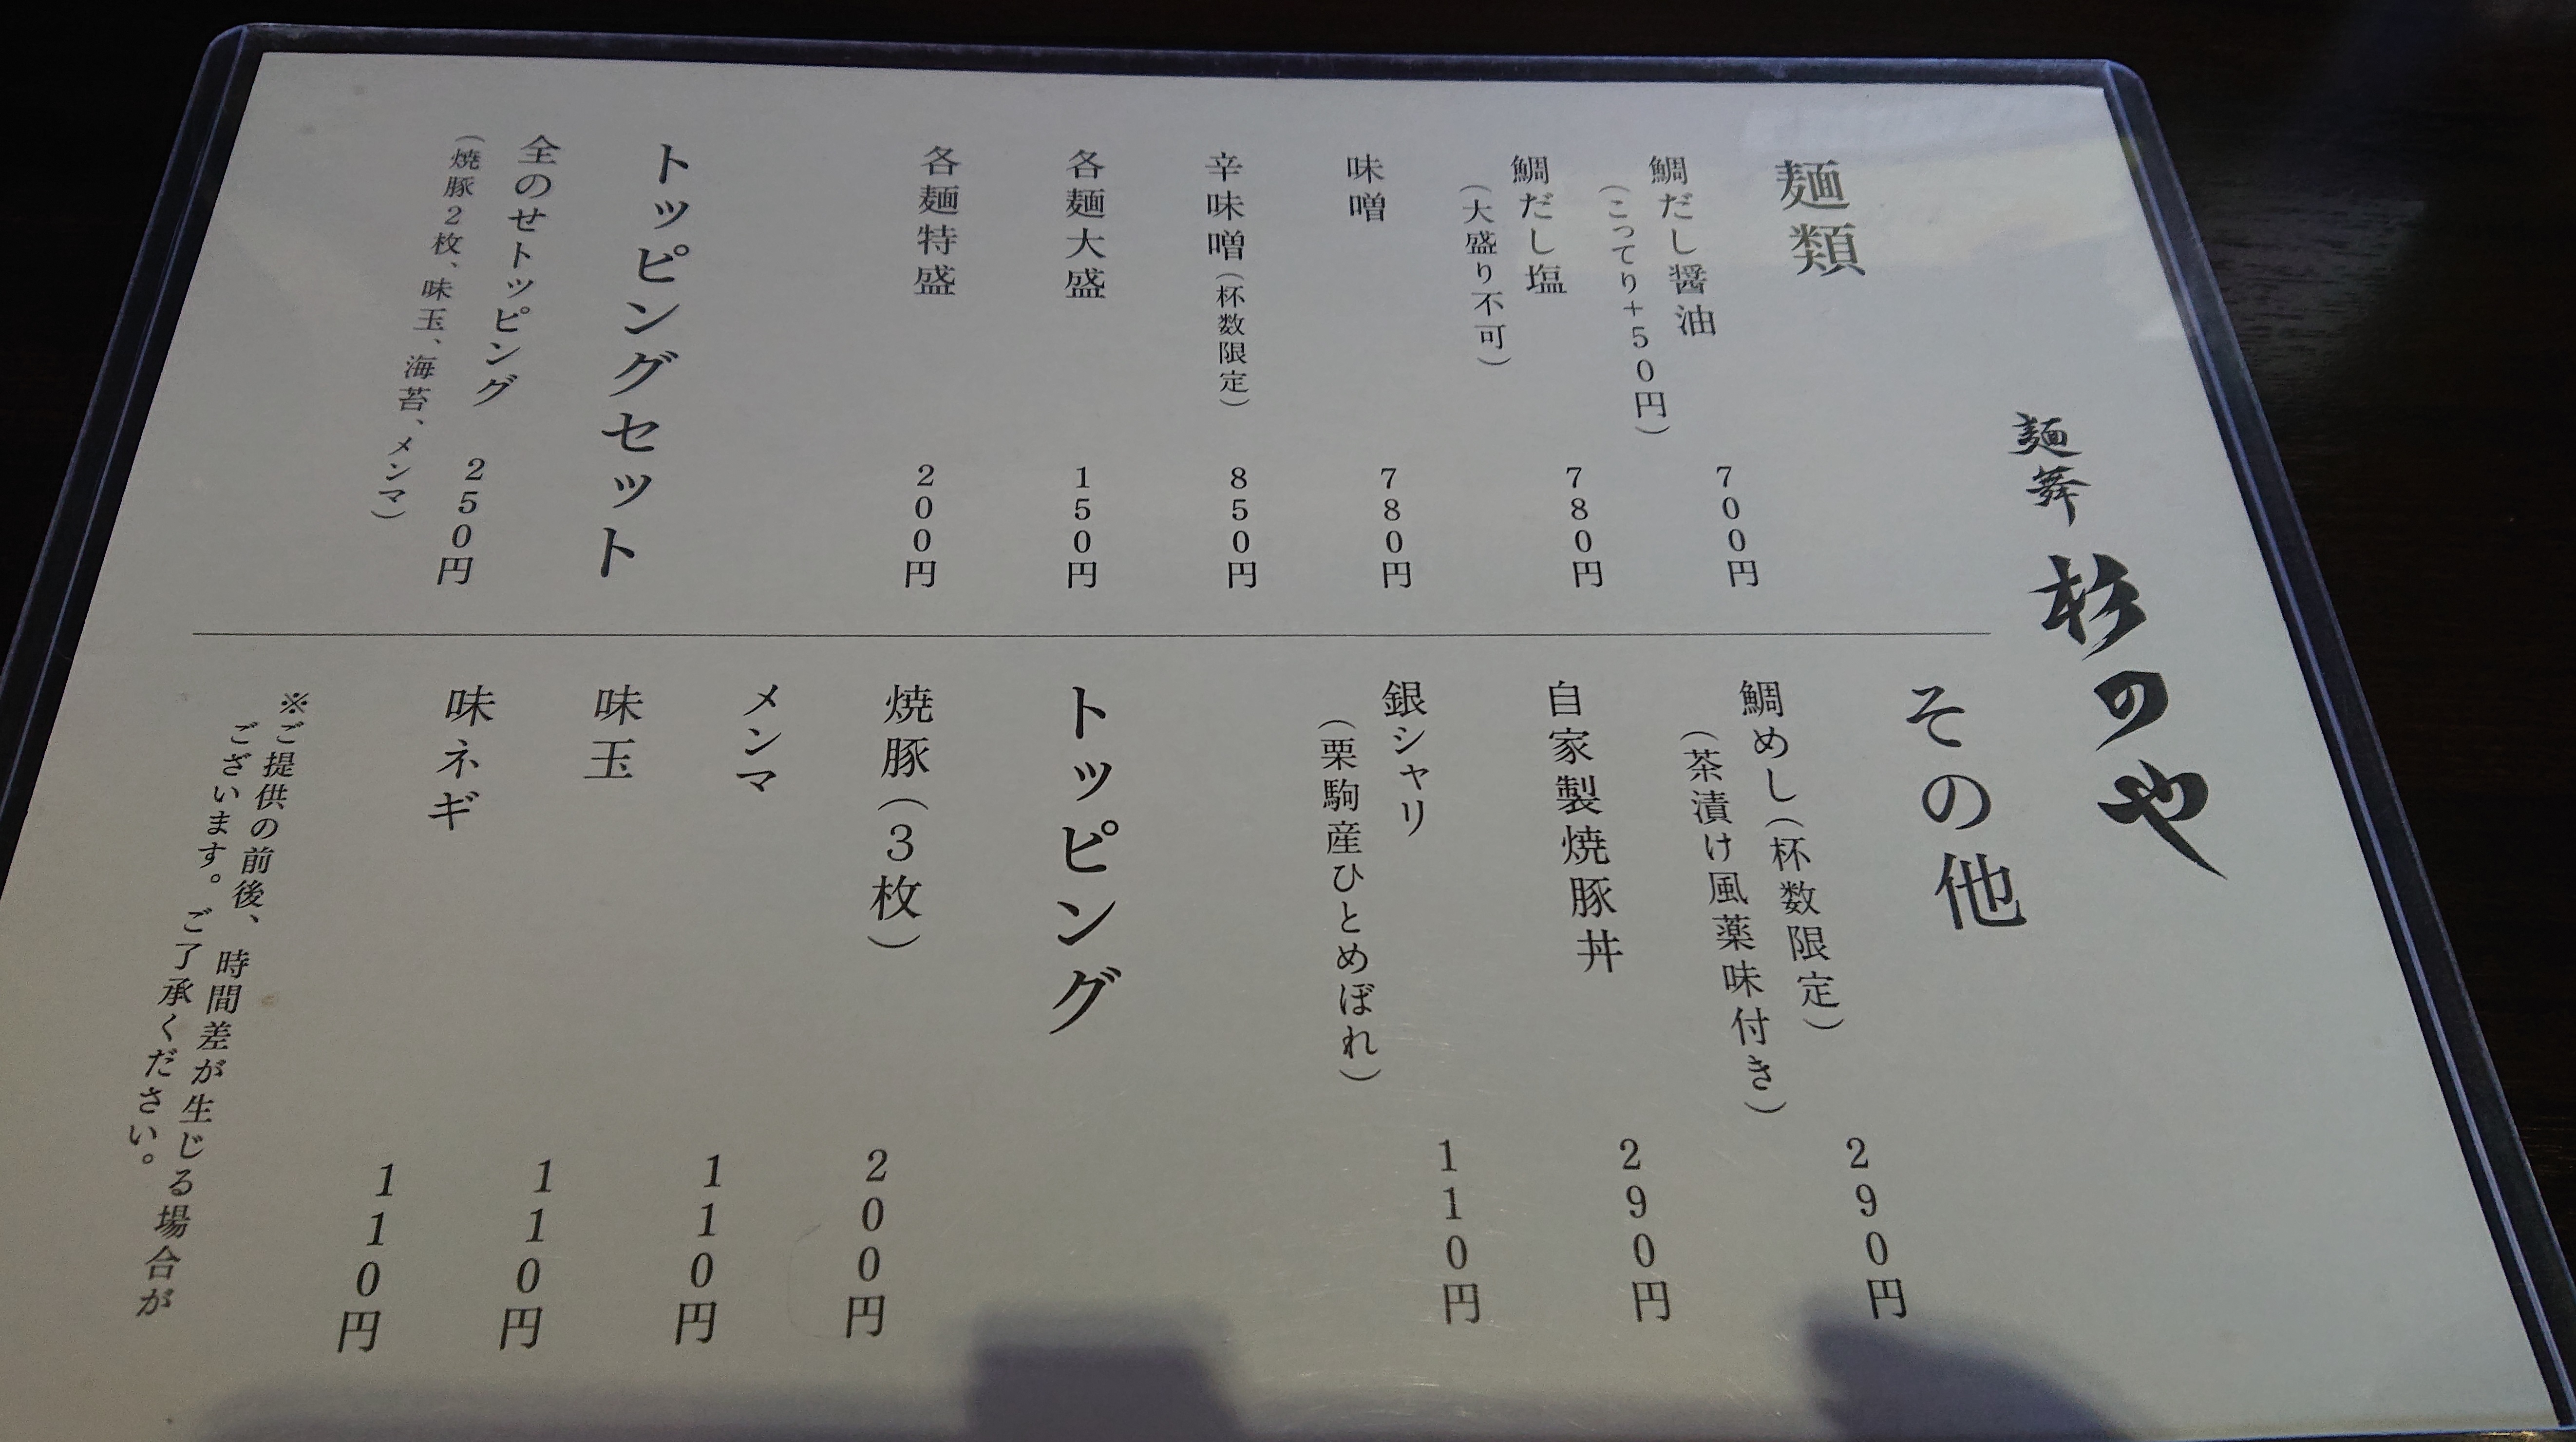 麺舞 杉のや
麺類
鯛だし醤油 700円
（こってり＋50円）
鯛だし塩 780円
（大盛り不可）
味噌 780円
辛味噌（杯数限定） 850円
各麺大盛 150円
各麺特盛 200円
トッピングセット
全のせトッピング 250円
（焼豚2枚、味玉、海苔、メンマ）
その他
鯛めし（杯数限定） 290円
（茶漬け風薬味付き）
自家製焼豚丼 290円
銀シャリ 110円
（栗駒産ひとめぼれ）
トッピング
焼豚（3枚） 200円
メンマ 110円
味玉 110円
味ネギ 110円
※ご提供の前後、時間差が生じる場合が
ございます。ご了承ください。